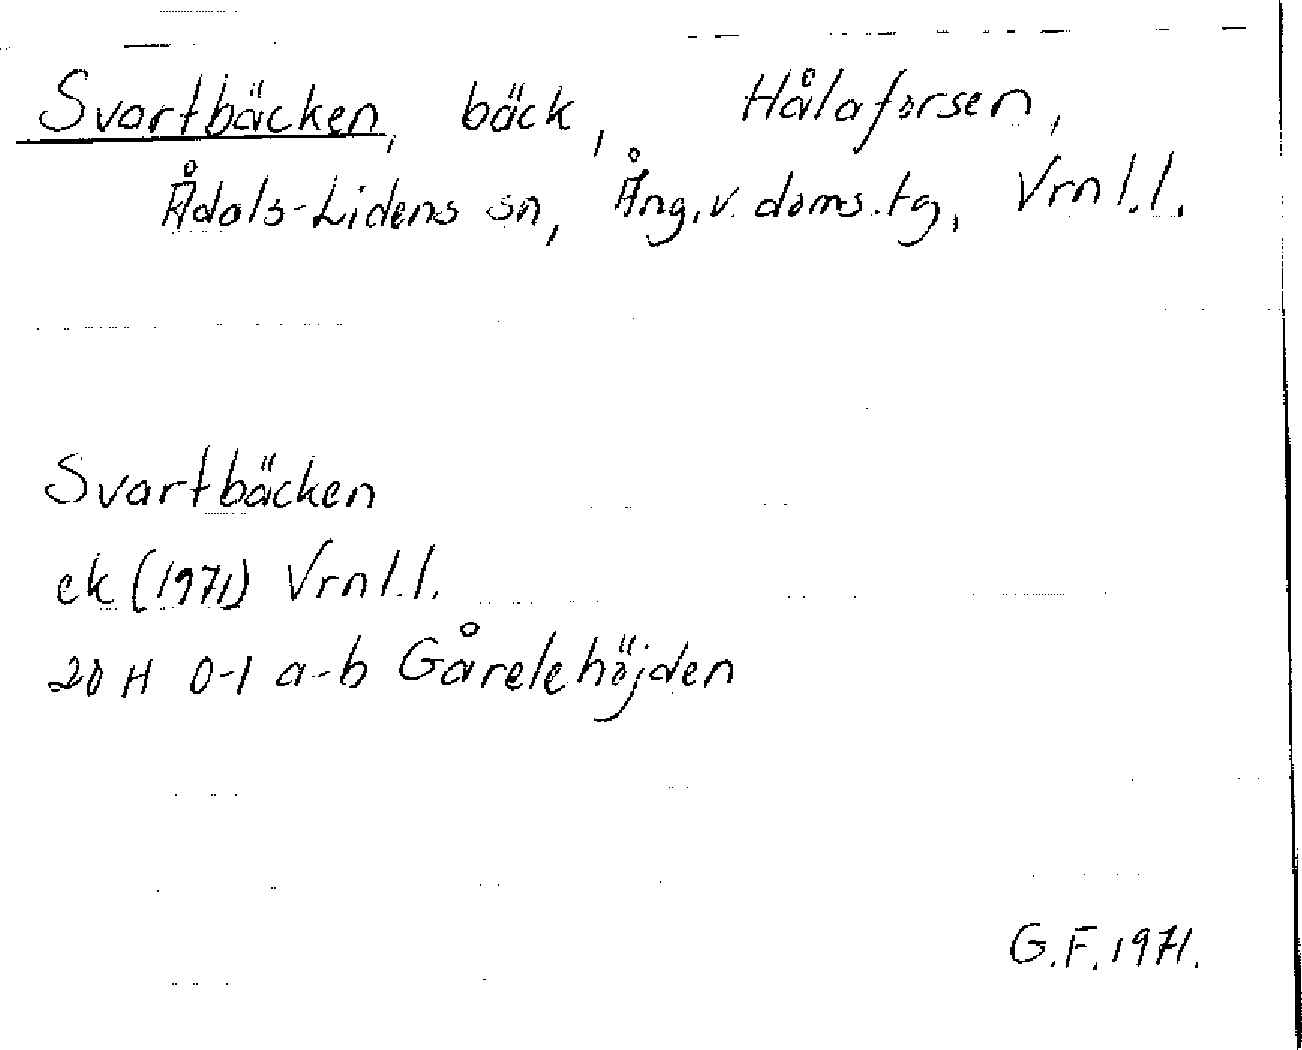 Svartbäcken, bäck, Hålaforsen,
Ådals-Lidens sn, Ång. v. doms. tg, Vrn l.l.
Svartbäcken
ek (1971) Vrn l.l.
20 H 0-1 a-b Gårelehöjden
G.F. 1971.